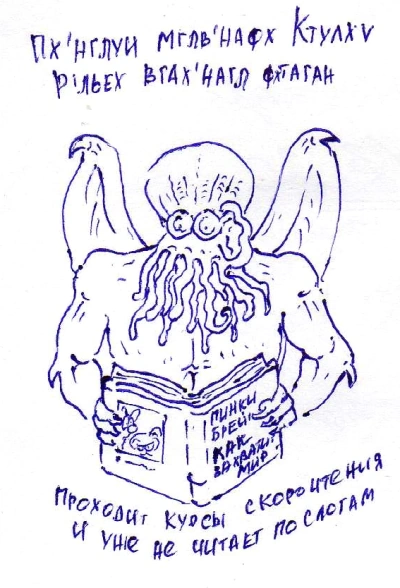 ПХ'НГЛУИ МГЛВ'НАФХ КТУЛХУ
РІЛЬЕХ ВГАХ'НАГЛ ФХТАГАН
ПИНКИ
БРЕЙН
КАК
ЗАХВАТИТ
МИР
ПРОХОДИТ КУРСЫ СКОРОЧТЕНИЯ
И УЖЕ НЕ ЧИТАЕТ ПО СЛОГАМ